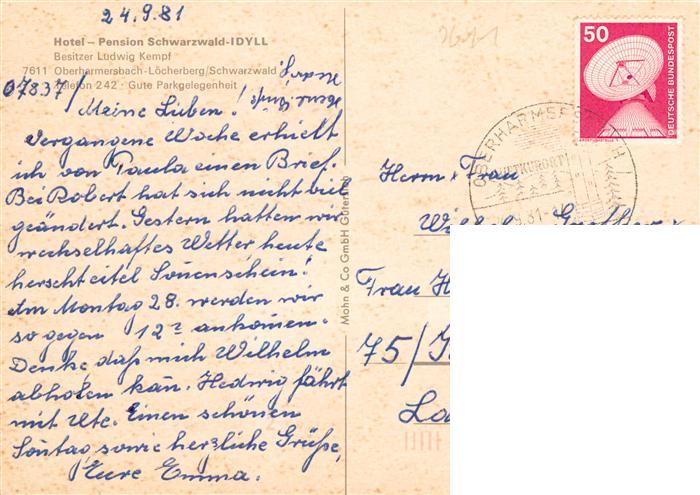 24.9.81
Hotel – Pension Schwarzwald-IDYLL
Besitzer Ludwig Kempf
7611 Oberharmersbach-Löcherberg/Schwarzwald
Telefon 242 · Gute Parkgelegenheit
07837/
Meine Lieben!
Vergangene Woche erhielt
ich von Paula einen Brief.
Bei Robert hat sich nicht viel
geändert. Gestern hatten wir
wechselhaftes Wetter heute
herscht eitel Sonenschein!
Am Montag 28. werden wir
so gegen 12 ankomen.
Denke, daß mich Wilhelm
abholen kan. Hedwig fährt
mit Ute. Einen schönen
Sontag sowie herzliche Grüße,
Eure Emma.
Mohn & Co GmbH Gütersloh
50
DEUTSCHE BUNDESPOST
OBERHARMERSBACH
LUFTKURORT
Herrn + Frau
Frau
75/